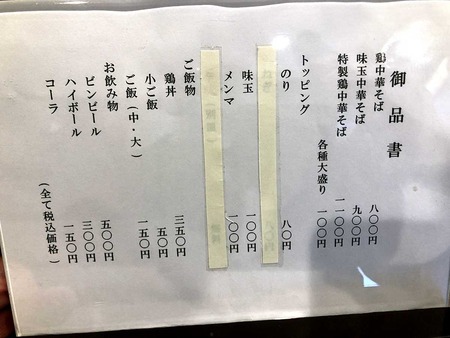 御品書
鶏中華そば 八〇〇円
味玉中華そば 九〇〇円
特製鶏中華そば 一一〇〇円
各種大盛り 一〇〇円
トッピング
のり 八〇円
味玉 一〇〇円
メンマ 一〇〇円
ご飯物
鶏丼 三五〇円
小ご飯 五〇円
ご飯(中・大) 一五〇円
お飲み物
ビンビール 五〇〇円
ハイボール 三〇〇円
コーラ 一五〇円
(全て税込価格)